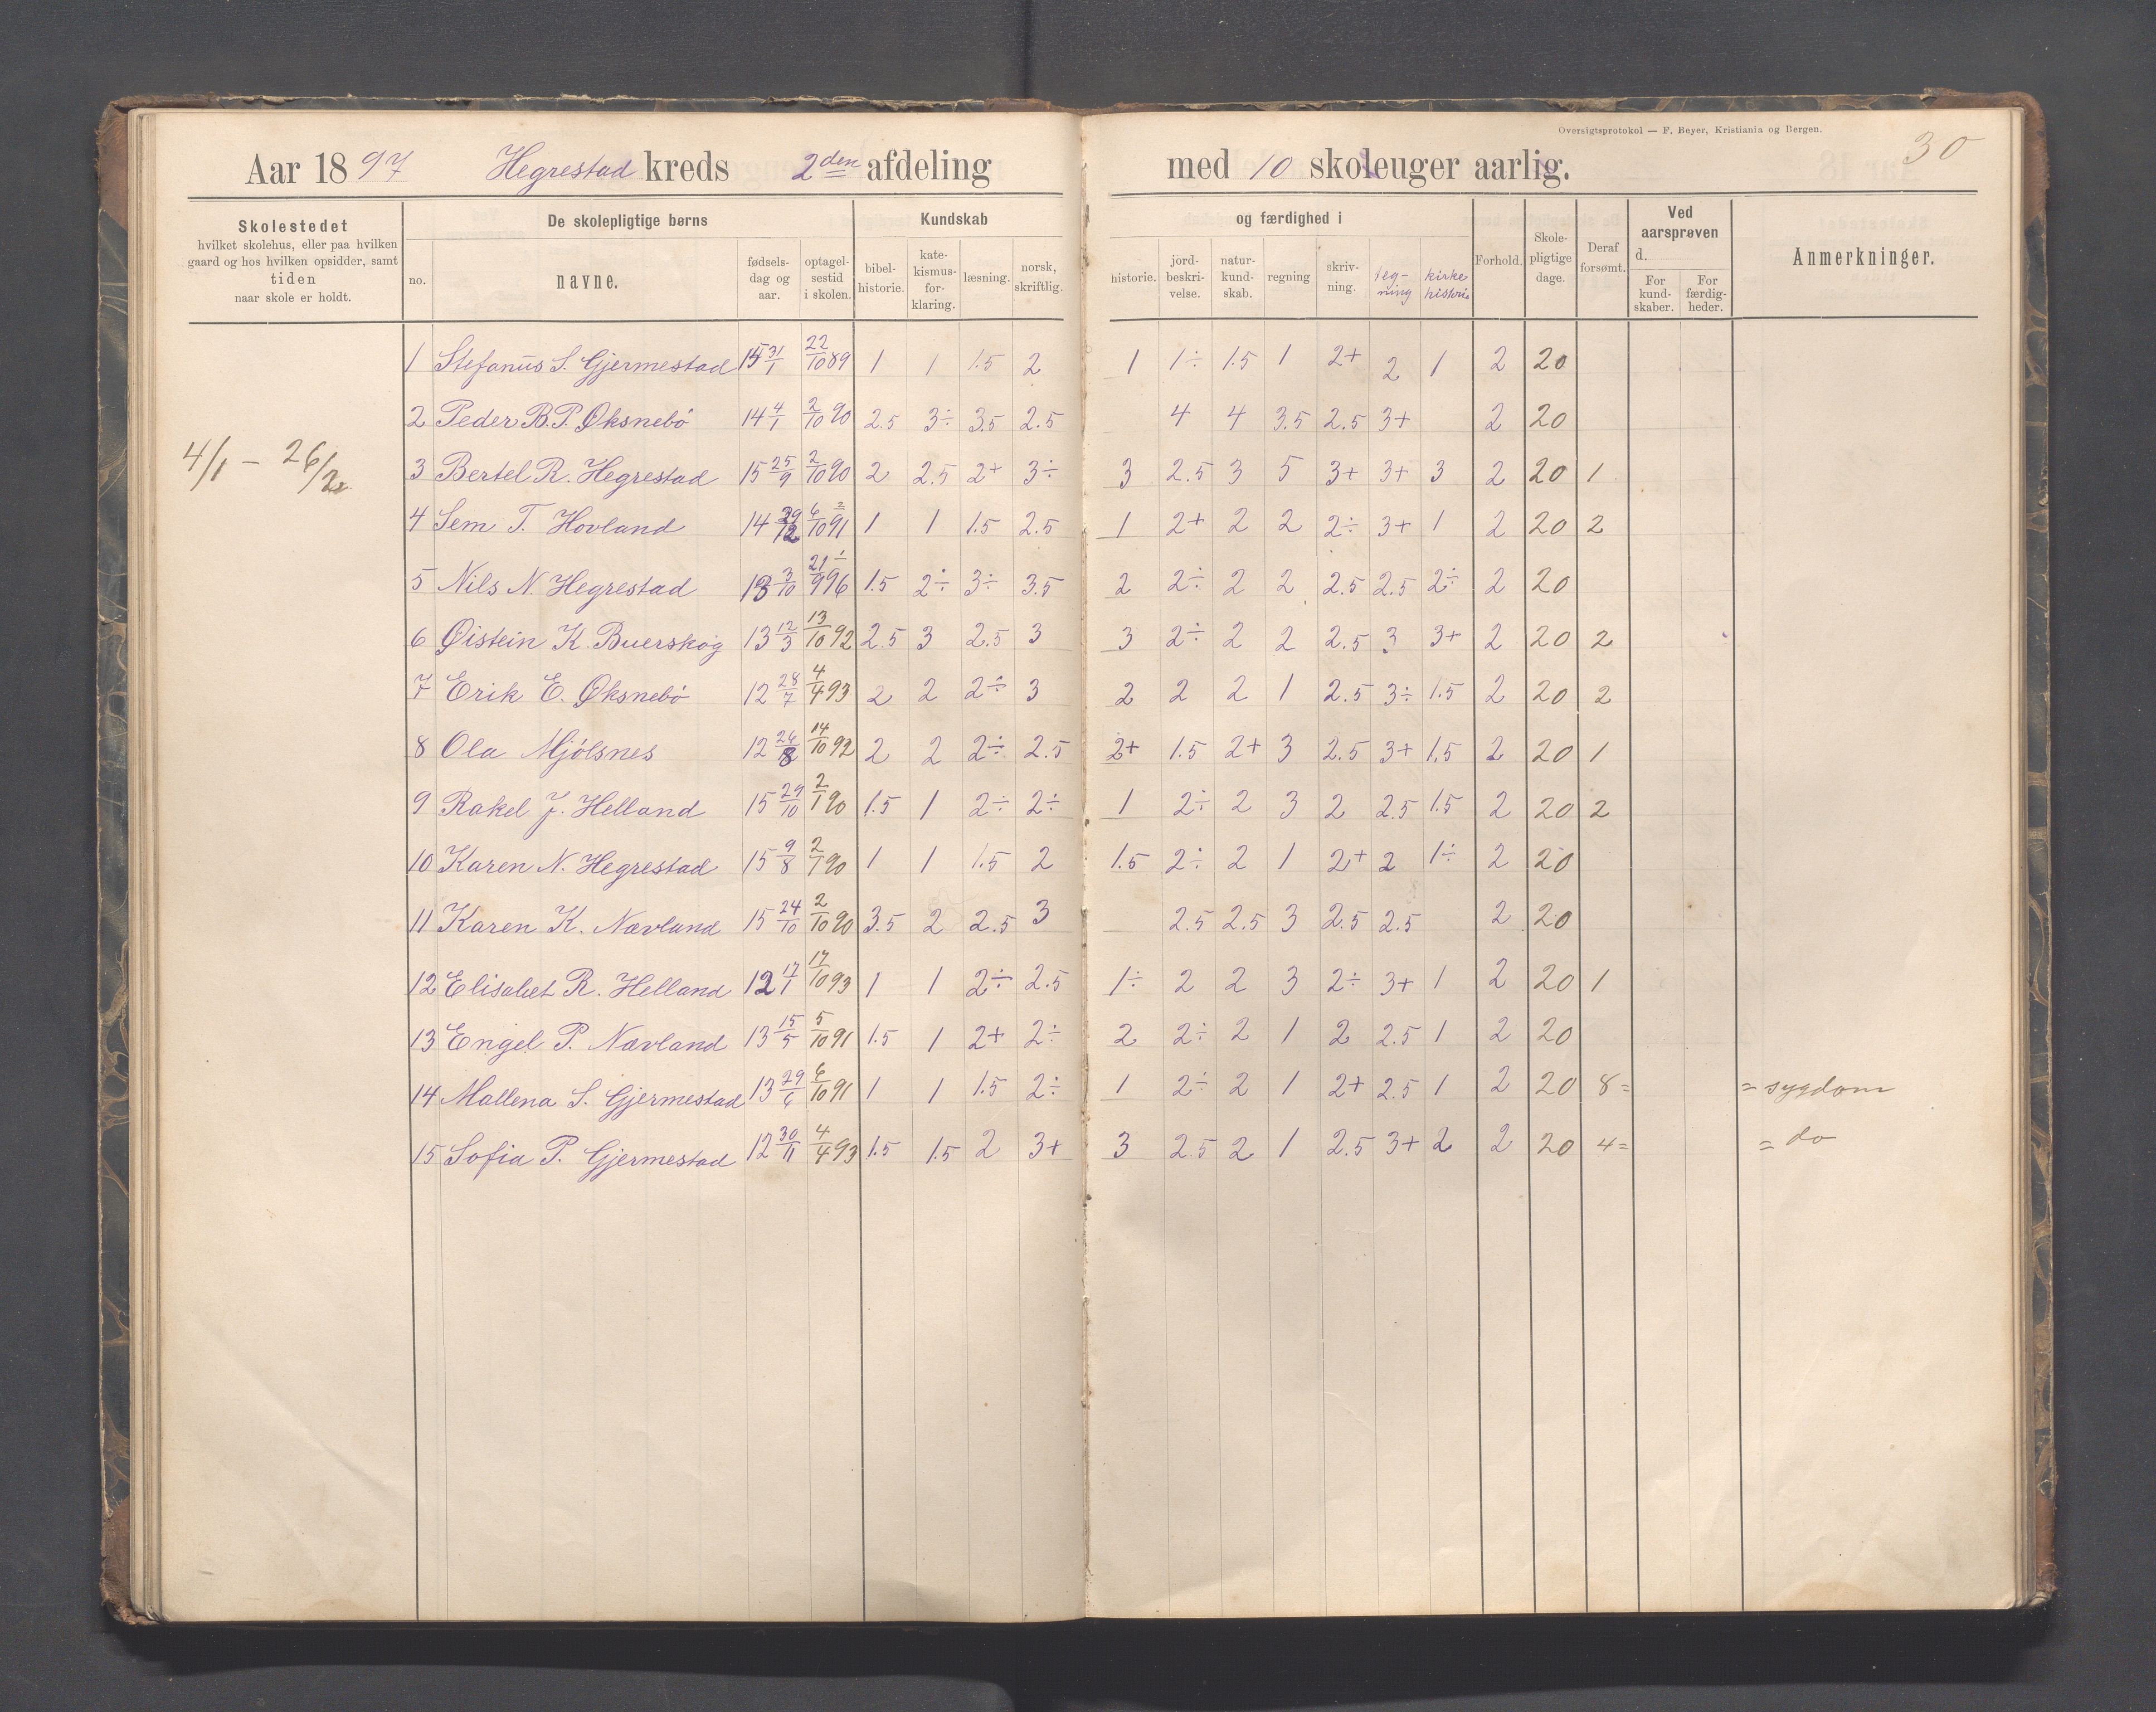 Oversigtsprotokol — F. Beyer, Kristiania og Bergen.
30
Aar 1897 Hegrestad kreds 2den afdeling med 10 skoleuger aarlig.
Skolestedet
hvilket skolehus, eller paa hvilken
gaard og hos hvilken opsidder, samt
tiden
naar skole er holdt.
De skolepligtige børns
no. navne. fødsels-dag og aar. optagel-sestid i skolen.
Kundskab og færdighed i
bibel-historie. kate-kismus-for-klaring. læsning. norsk, skriftlig. historie. jord-beskri-velse. natur-kund-skab. regning skriv-ning. teg-ning kirke historie
Forhold. Skole-pligtige dage. Deraf forsømt.
Ved aarsprøven d.
For kund-skaber. For færdig-heder.
Anmerkninger.
4/1 – 26/2
1 Stefanus S. Gjermestad 15 31/1 22/10 89 1 1 1.5 2 1 1÷ 1.5 1 2+ 2 1 2 20
2 Peder B.P. Øksnebö 14 4/1 2/10 90 2.5 3÷ 3.5 2.5 4 4 3.5 2.5 3+ 2 20
3 Bertel R. Hegrestad 15 25/9 2/10 90 2 2.5 2+ 3÷ 3 2.5 3 5 3+ 3+ 3 2 20 1
4 Sem T. Hovland 14 29/12 6/10 91 1 1 1.5 2.5 1 2+ 2 2 2÷ 3+ 1 2 20 2
5 Nils N. Hegrestad 13 3/10 21/9 96 1.5 2÷ 3÷ 3.5 2 2÷ 2 2 2.5 2.5 2÷ 2 20
6 Øistein K. Buerskog 13 12/3 13/10 92 2.5 3 2.5 3 3 2÷ 2 2 2.5 3 3+ 2 20 2
7 Erik E. Øksnebö 12 28/7 4/4 93 2 2 2÷ 3 2 2 2 1 2.5 3÷ 1.5 2 20 2
8 Ola Mjölsnes 12 26/8 14/10 92 2 2 2÷ 2.5 2+ 1.5 2+ 3 2.5 3+ 1.5 2 20 1
9 Rakel J. Helland 15 29/10 2/1 90 1.5 1 2÷ 2÷ 1 2÷ 2 3 2 2.5 1.5 2 20 2
10 Karen N. Hegrestad 15 9/8 2/1 90 1 1 1.5 2 1.5 2÷ 2 1 2+ 2 1÷ 2 20
11 Karen K. Nævland 15 24/10 2/10 90 3.5 2 2.5 3 2.5 2.5 3 2.5 2.5 2 20
12 Elisabet R. Helland 12 17/1 17/10 93 1 1 2÷ 2.5 1÷ 2 2 3 2÷ 3+ 1 2 20 1
13 Engel P. Nævland 13 15/5 5/10 91 1.5 1 2+ 2÷ 2 2÷ 2 1 2 2.5 1 2 20
14 Mallena S. Gjermestad 13 29/6 6/10 91 1 1 1.5 2÷ 1 2÷ 2 1 2+ 2.5 1 2 20 8= = sygdom
15 Sofia P. Gjermestad 12 30/11 4/4 93 1.5 1.5 2 3+ 3 2.5 2 1 2.5 3+ 2 2 20 4= = do